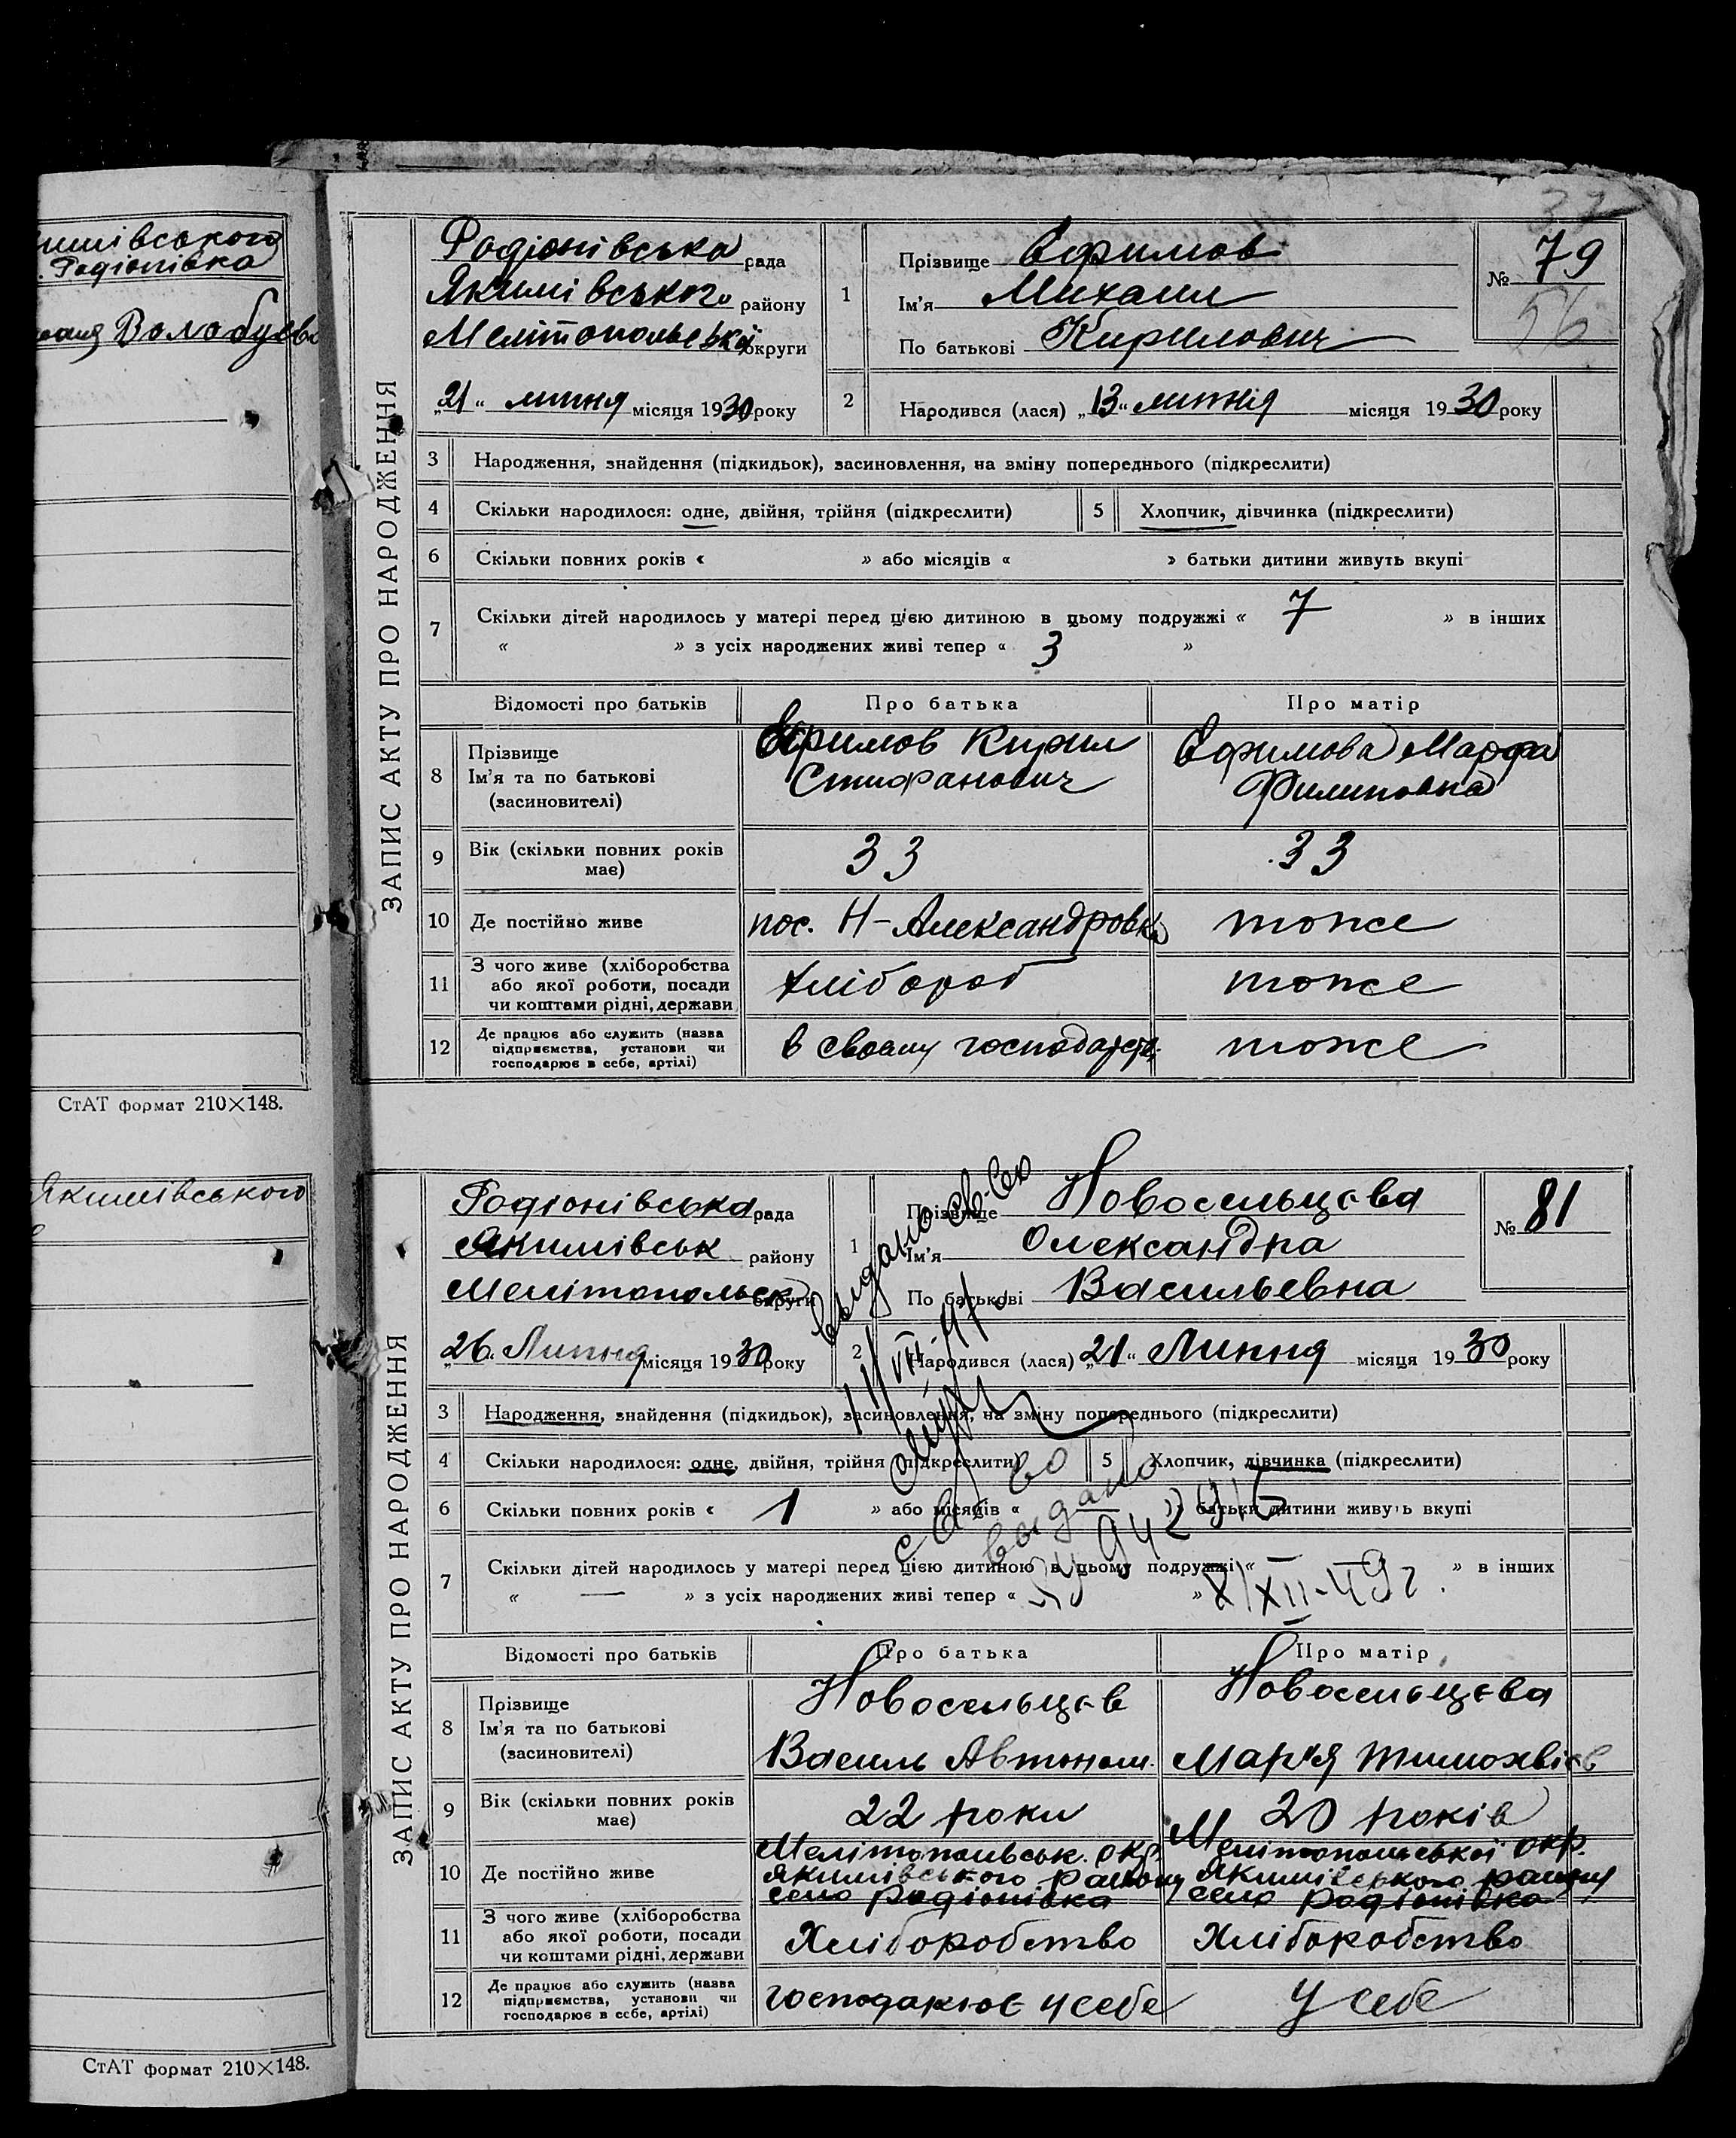 имівського
. Родіонівка
Волобуєва
СтАТ формат 210×148.
Якимівського
СтАТ формат 210×148.
ЗАПИС АКТУ ПРО НАРОДЖЕННЯ
Родіонівська рада
Якимівського району
Мелітопольської округи
„21“ липня місяця 1930 року
1
Прізвище Ефимов
Ім'я Михаил
По батькові Кирилович
№ 79
56
2
Народився (лася) „13“ липня місяця 1930 року
3 Народження, знайдення (підкидьок), засиновлення, на зміну попереднього (підкреслити)
4 Скільки народилося: одне, двійня, трійня (підкреслити) 5 Хлопчик, дівчинка (підкреслити)
6 Скільки повних років « » або місяців « » батьки дитини живуть вкупі
7 Скільки дітей народилось у матері перед цією дитиною в цьому подружжі « 7 » в інших
« » з усіх народжених живі тепер « 3 »
Відомості про батьків Про батька Про матір
8 Прізвище Ім'я та по батькові (засиновителі)
Ефимов Кирил
Стифанович
Ефимова Марфа
Филиповна
9 Вік (скільки повних років має) 33 33
10 Де постійно живе пос. Н-Александровка тоже
11 З чого живе (хліборобства
або якої роботи, посади
чи коштами рідні, держави
хлібороб тоже
12 Де працює або служить (назва
підприємства, установи чи
господарює в себе, артілі)
в своему господарстві тоже
ЗАПИС АКТУ ПРО НАРОДЖЕННЯ
Родіонівська рада
Якимівськ району
Мелітопольск округи
„26. Липня місяця 1930 року
1
Прізвище Новосельцева
Ім'я Олександра
По батькові Васильевна
№ 81
2
Народився (лася) „21“ Липня місяця 1930 року
выдано св-во
3 Народження, знайдення (підкидьок), засиновлення, на зміну попереднього (підкреслити)
4 Скільки народилося: одне, двійня, трійня (підкреслити) 5 Хлопчик, дівчинка (підкреслити)
6 Скільки повних років « 1 » або місяців « » батьки дитини живуть вкупі
св во
выдано
7 Скільки дітей народилось у матері перед цією дитиною в цьому подружжі « » в інших
« — » з усіх народжених живі тепер « »
XII-49г.
Відомості про батьків Про батька Про матір
8 Прізвище
Ім'я та по батькові
(засиновителі)
Новосельцев
Василь Автоном.
Новосельцева
Мар'я Тимохвієв
9 Вік (скільки повних років має) 22 роки 20 років
10 Де постійно живе
Мелітопольськ. окр.
Якимівського району
село Радіонівка
Мелітопольської окр.
Якимівського району
село Радіонівка
11 З чого живе (хліборобства
або якої роботи, посади
чи коштами рідні, держави
Хліборобство Хліборобство
12 Де працює або служить (назва
підприємства, установи чи
господарює в себе, артілі)
господарює у себе У себе